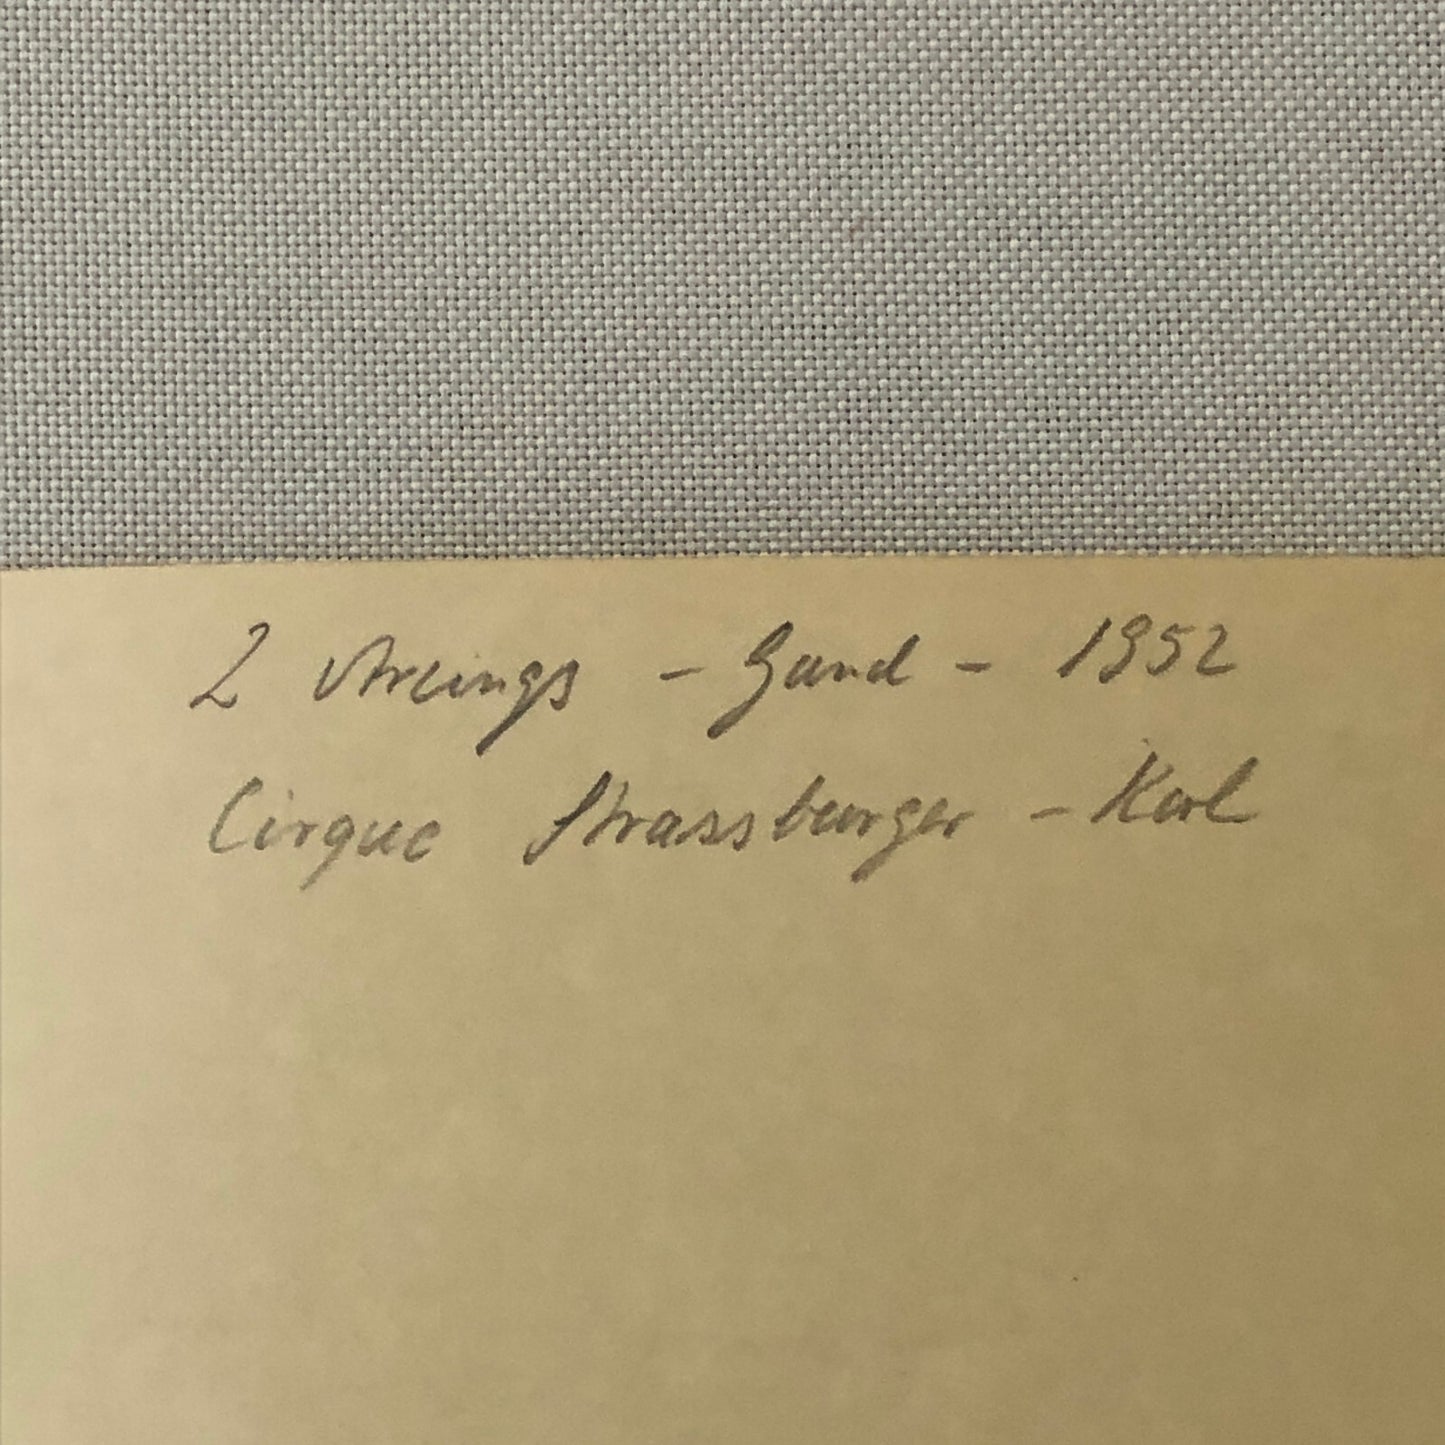 2 Arcings - Gand - 1952
Cirque Strassburger - Karl